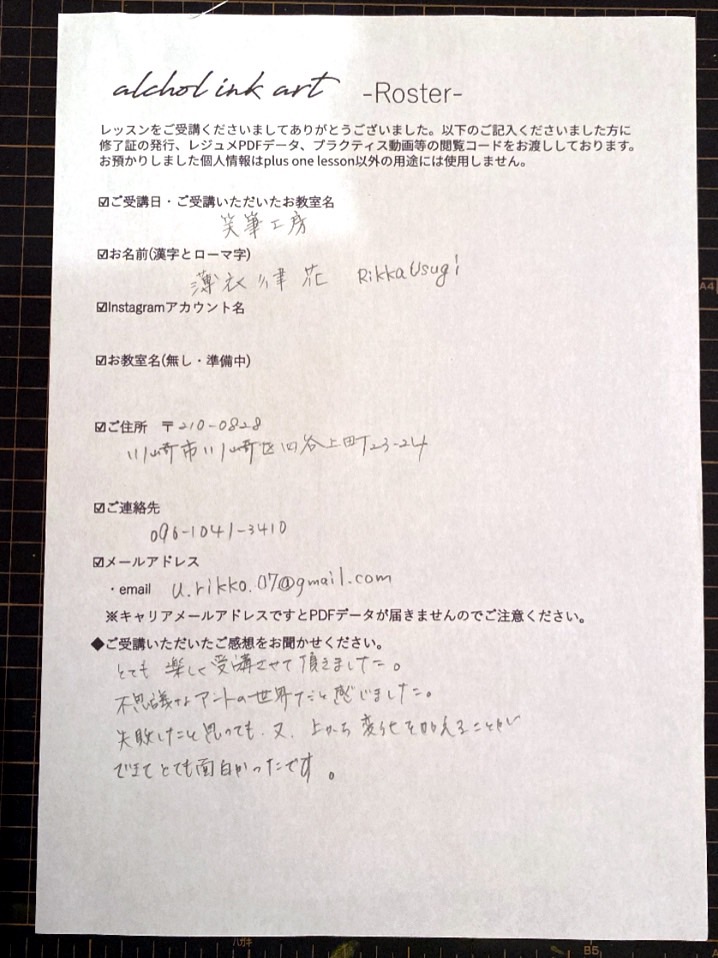 alchol ink art -Roster-
レッスンをご受講くださいましてありがとうございました。以下のご記入くださいました方に
修了証の発行、レジュメPDFデータ、プラクティス動画等の閲覧コードをお渡ししております。
お預かりしました個人情報はplus one lesson以外の用途には使用しません。
☑ご受講日・ご受講いただいたお教室名
笑筆工房
☑お名前(漢字とローマ字)
薄衣 律花 Rikka Usugi
☑Instagramアカウント名
☑お教室名(無し・準備中)
☑ご住所 〒210-0828
川崎市川崎区四谷上町23-24
☑ご連絡先
096-1041-3410
☑メールアドレス
・email u.rikko.07@gmail.com
※キャリアメールアドレスですとPDFデータが届きませんのでご注意ください。
◆ご受講いただいたご感想をお聞かせください。
とても楽しく受講させて頂きました。
不思議なアートの世界だと感じました。
失敗したと思っても、又、上から変化を加えることが
できてとても面白かったです。
A4
ハガキ
B5